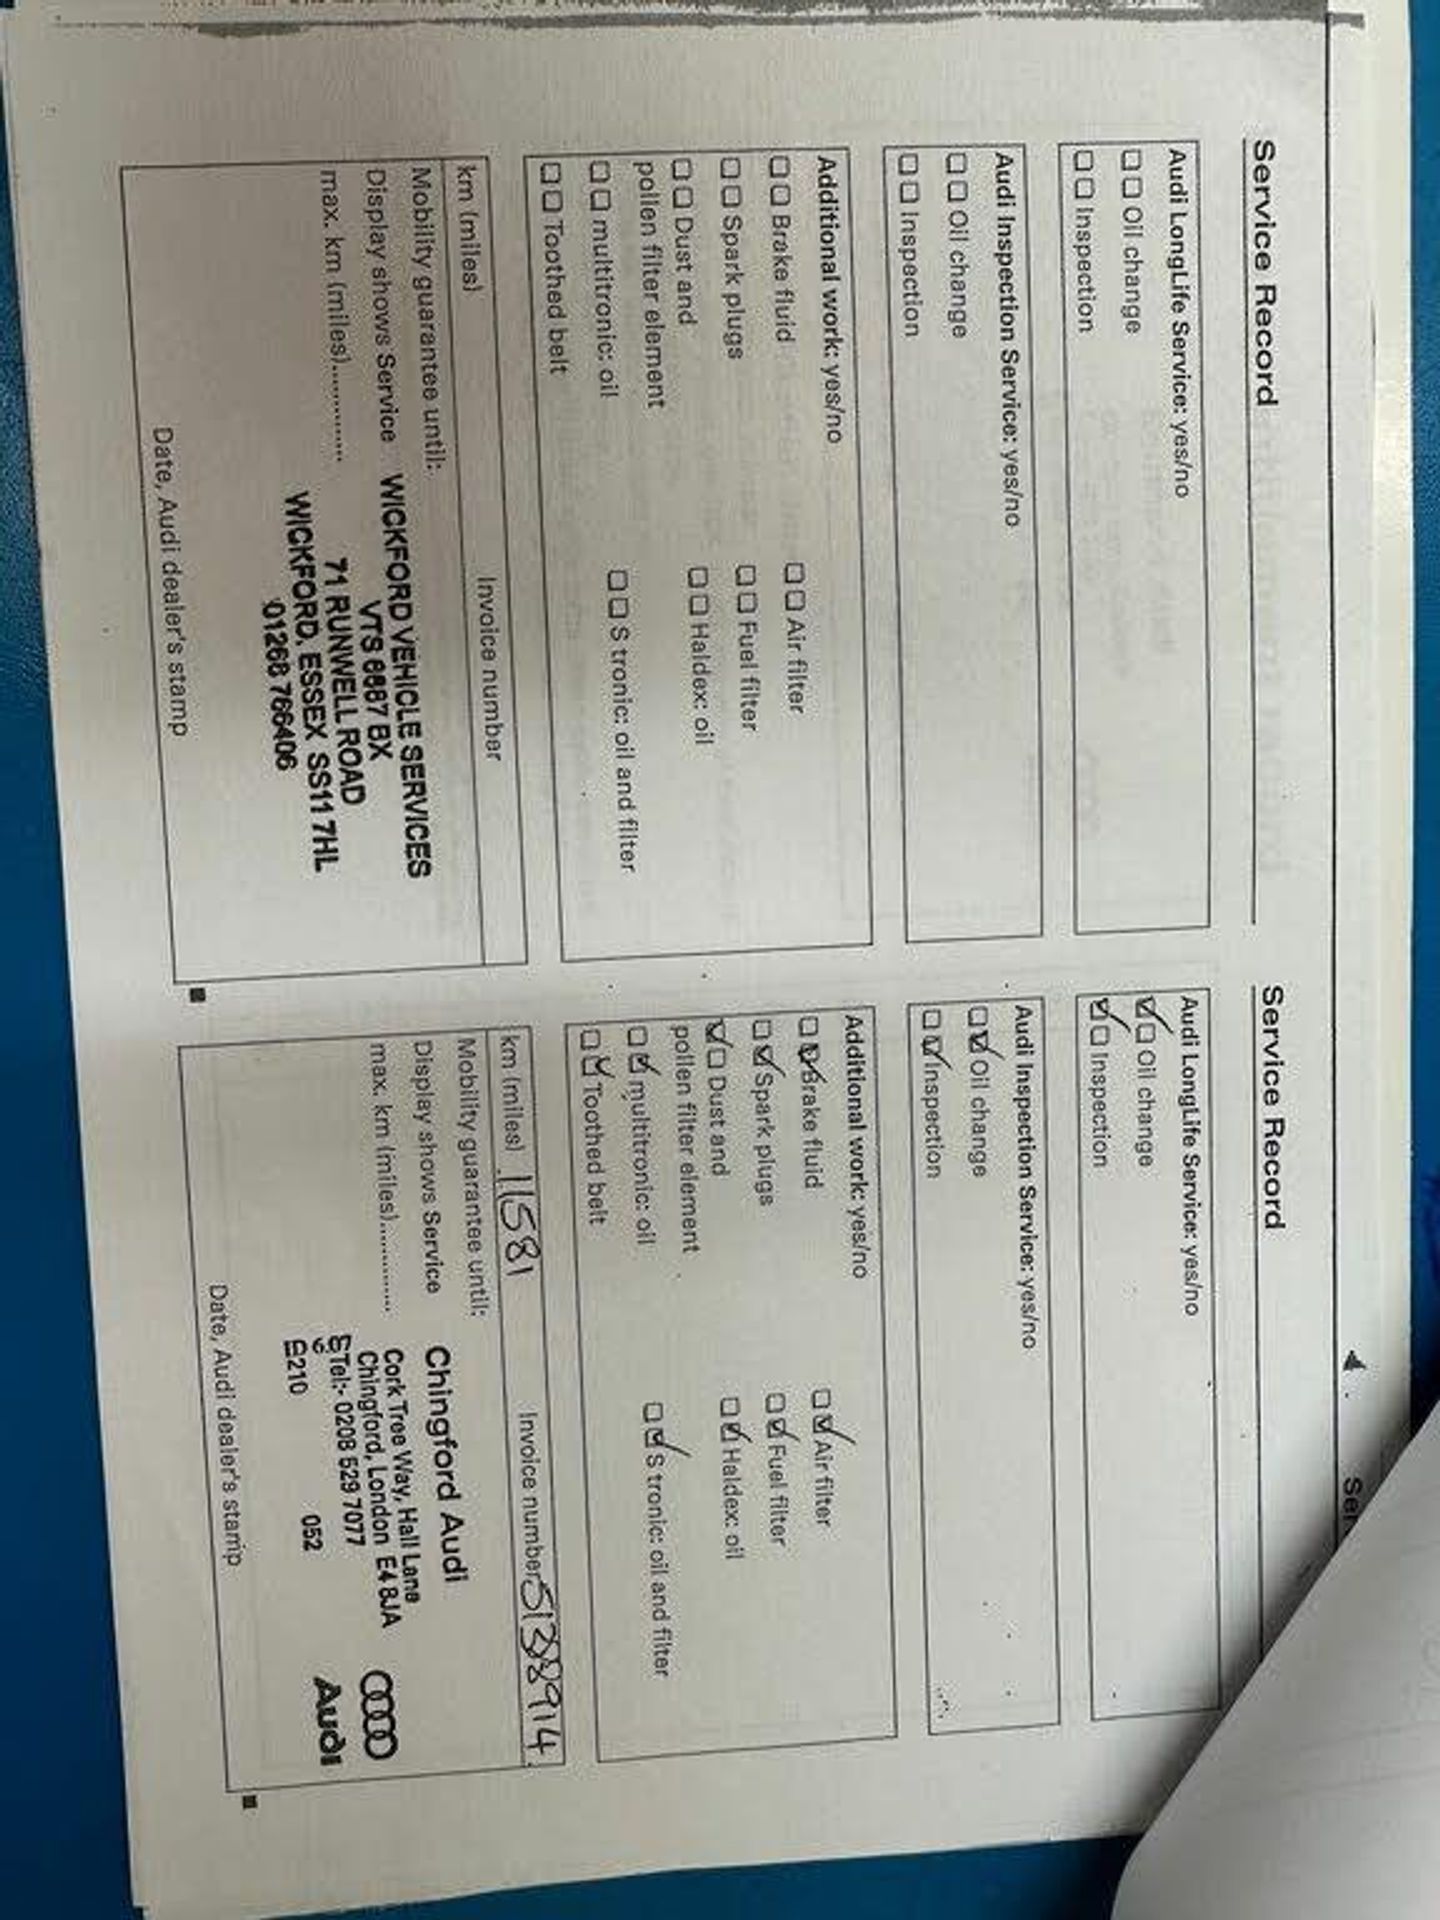 Service Record
Audi LongLife Service: yes/no
☐☐ Oil change
☐☐ Inspection
Audi Inspection Service: yes/no
☐☐ Oil change
☐☐ Inspection
Additional work: yes/no
☐☐ Brake fluid ☐☐ Air filter
☐☐ Spark plugs ☐☐ Fuel filter
☐☐ Dust and ☐☐ Haldex: oil
pollen filter element
☐☐ multitronic: oil ☐☐ S tronic: oil and filter
☐☐ Toothed belt
km (miles) Invoice number
Mobility guarantee until:
Display shows Service
max. km (miles).............
WICKFORD VEHICLE SERVICES
VTS 6887 BX
71 RUNWELL ROAD
WICKFORD, ESSEX SS11 7HL
01268 766406
Date, Audi dealer's stamp
Service Record
Audi LongLife Service: yes/no
☑☐ Oil change
☑☐ Inspection
Audi Inspection Service: yes/no
☐☑ Oil change
☐☑ Inspection
Additional work: yes/no
☐☑ Brake fluid ☐☑ Air filter
☐☑ Spark plugs ☐☑ Fuel filter
☑☐ Dust and ☐☑ Haldex: oil
pollen filter element
☐☑ multitronic: oil ☐☑ S tronic: oil and filter
☐☑ Toothed belt
km (miles) 11581 Invoice number 51388914
Mobility guarantee until:
Display shows Service
max. km (miles).............
Chingford Audi
Cork Tree Way, Hall Lane
Chingford, London E4 8JA
Tel:- 0208 529 7077
052
210
Audi
Date, Audi dealer's stamp